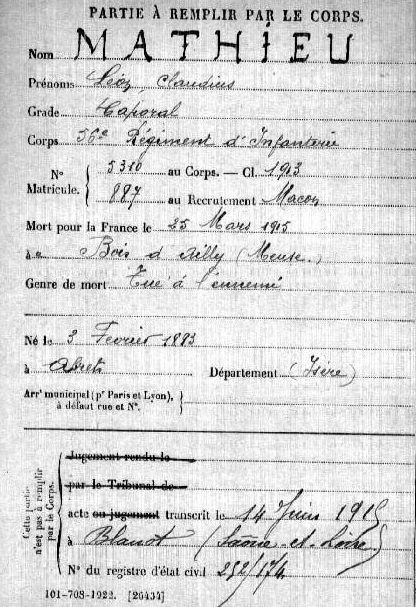 PARTIE À REMPLIR PAR LE CORPS.
Nom MATHIEU
Prénoms Léon, Claudius
Grade Caporal
Corps 56e Régiment d'Infanterie
N° Matricule. 5310 au Corps. — Cl. 1903
887 au Recrutement Macon
Mort pour la France le 25 Mars 1915
à Bois d'Ailly (Meuse.)
Genre de mort Tué à l'ennemi
Né le 3 Février 1883
à Abrets Département (Isère)
Arrt municipal (pr Paris et Lyon),
à défaut rue et N°.
Cette partie
n'est pas à remplir
par le Corps.
Jugement rendu le
par le Tribunal de
acte ou jugement transcrit le 14 Juin 1915
à Blanot (Saône-et-Loire)
N° du registre d'état civil 252/174
101-708-1922. [26434]